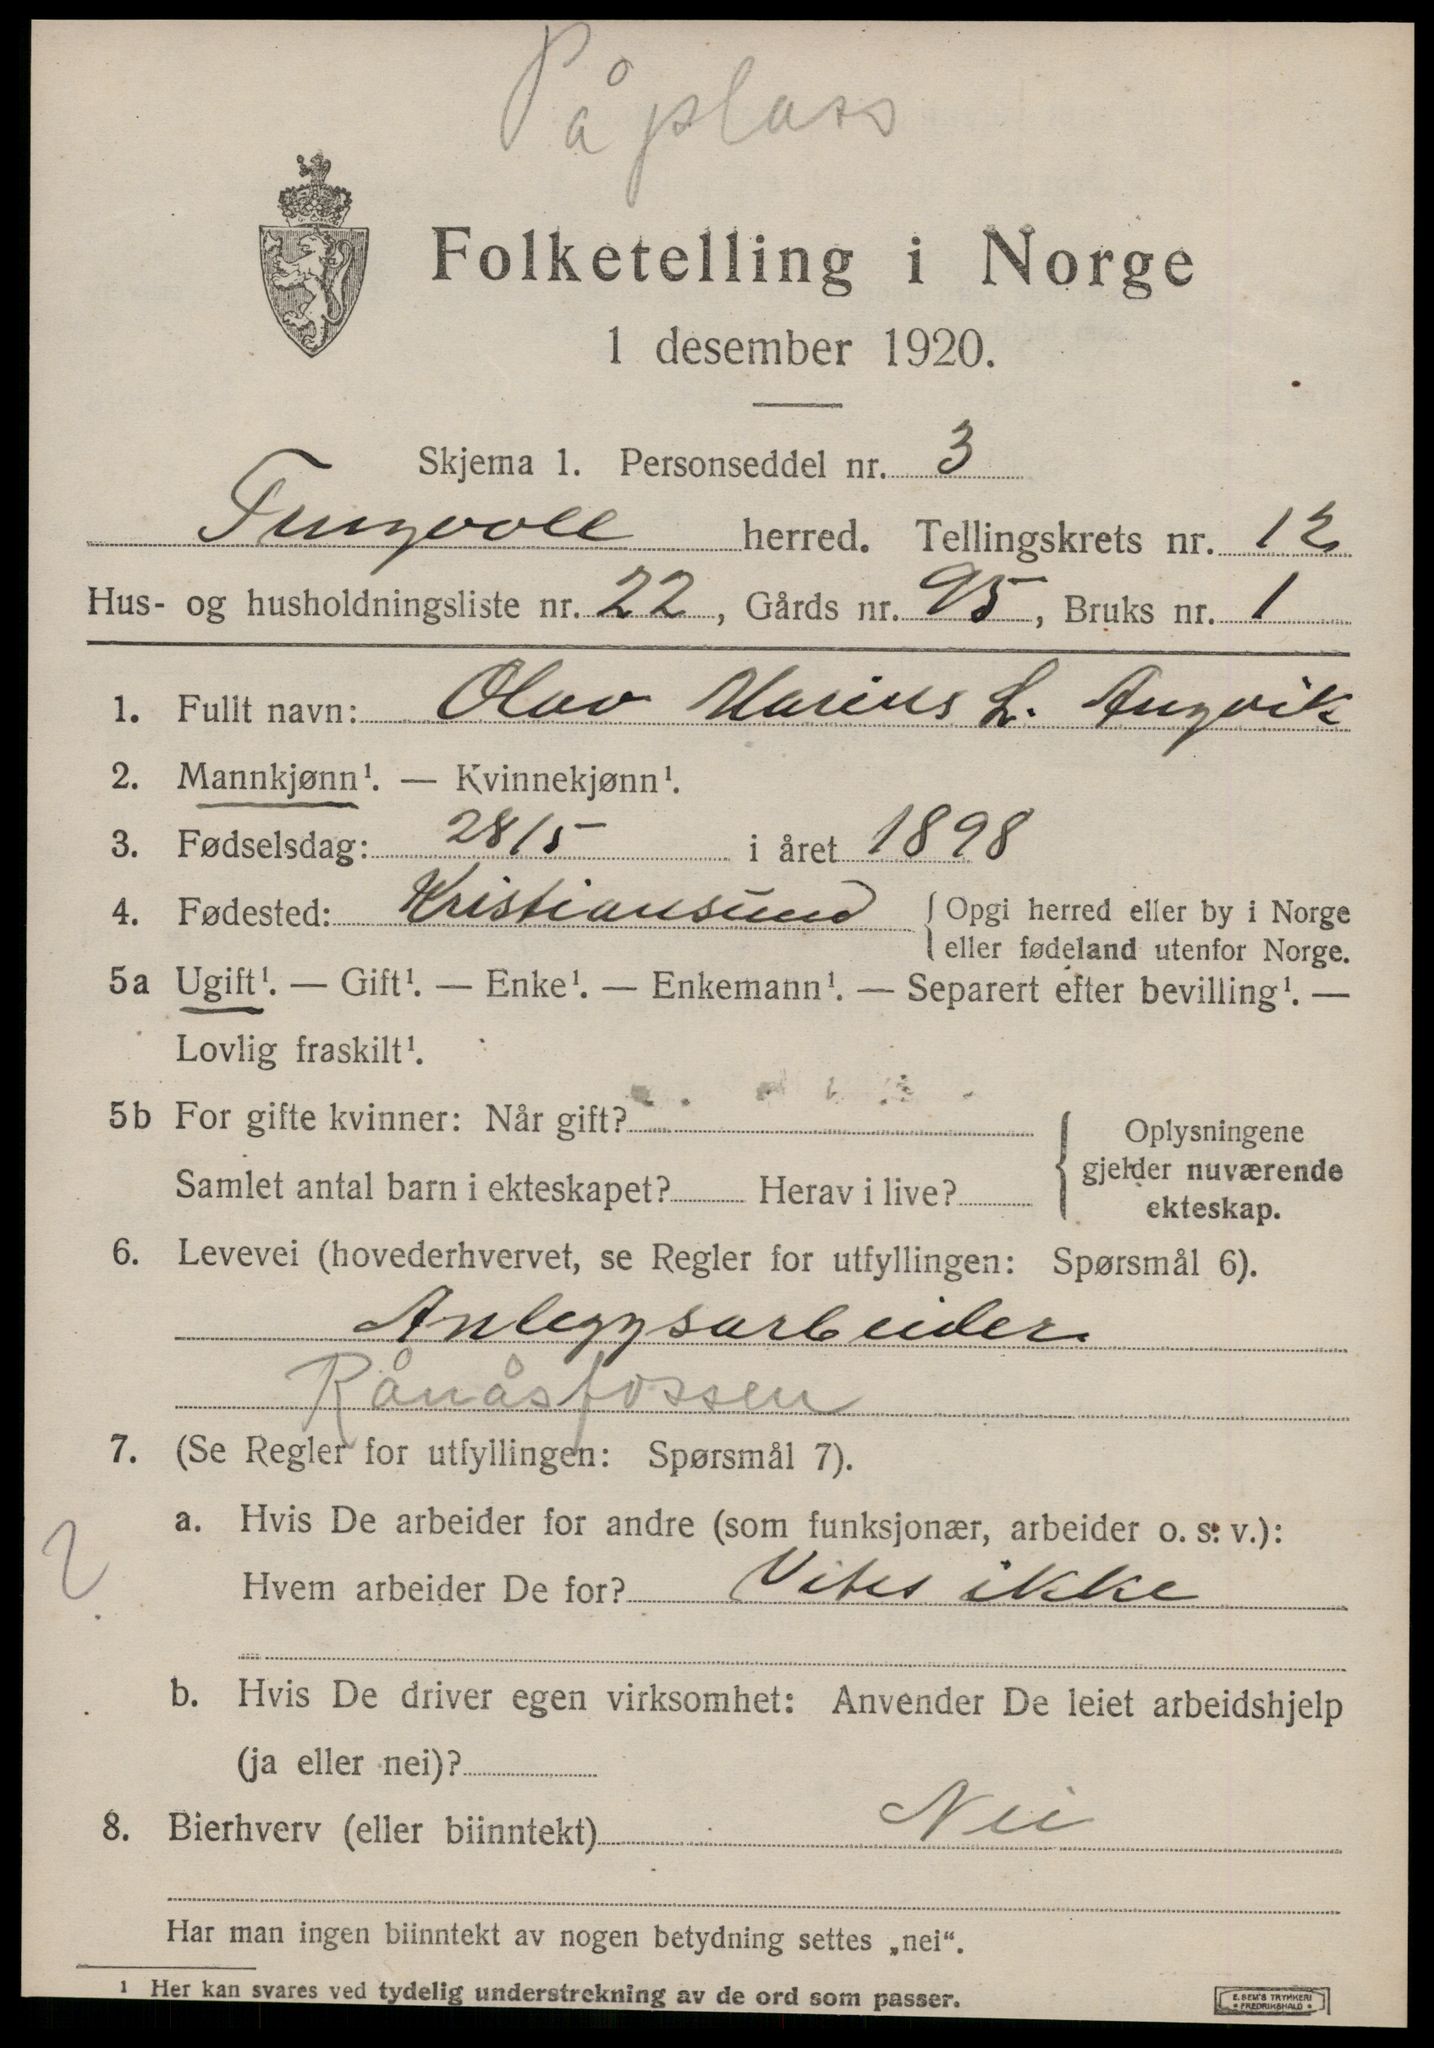 På plass
Folketelling i Norge
1 desember 1920.
Skjema 1. Personseddel nr. 3
Tingvoll herred. Tellingskrets nr. 12
Hus- og husholdningsliste nr. 22, Gårds nr. 95, Bruks nr. 1
1. Fullt navn: Olav Marius L. Angvik
2. Mannkjønn¹. — Kvinnekjønn¹.
3. Fødselsdag: 28/5 i året 1898
4. Fødested: Kristiansund { Opgi herred eller by i Norge
eller fødeland utenfor Norge.
5a Ugift¹. — Gift¹. — Enke¹. — Enkemann¹. — Separert efter bevilling¹. —
Lovlig fraskilt¹.
5b For gifte kvinner: Når gift?
Samlet antal barn i ekteskapet? Herav i live?
{ Oplysningene
gjelder nuværende
ekteskap.
6. Levevei (hovederhvervet, se Regler for utfyllingen: Spørsmål 6).
Anleggsarbeider
Rånåsfossen
7. (Se Regler for utfyllingen: Spørsmål 7).
a. Hvis De arbeider for andre (som funksjonær, arbeider o. s. v.):
Hvem arbeider De for? Vites ikke
b. Hvis De driver egen virksomhet: Anvender De leiet arbeidshjelp
(ja eller nei)?
8. Bierhverv (eller biinntekt) Nei
Har man ingen biinntekt av nogen betydning settes „nei“.
¹ Her kan svares ved tydelig understrekning av de ord som passer.
E. SEM'S TRYKKERI
FREDRIKSHALD